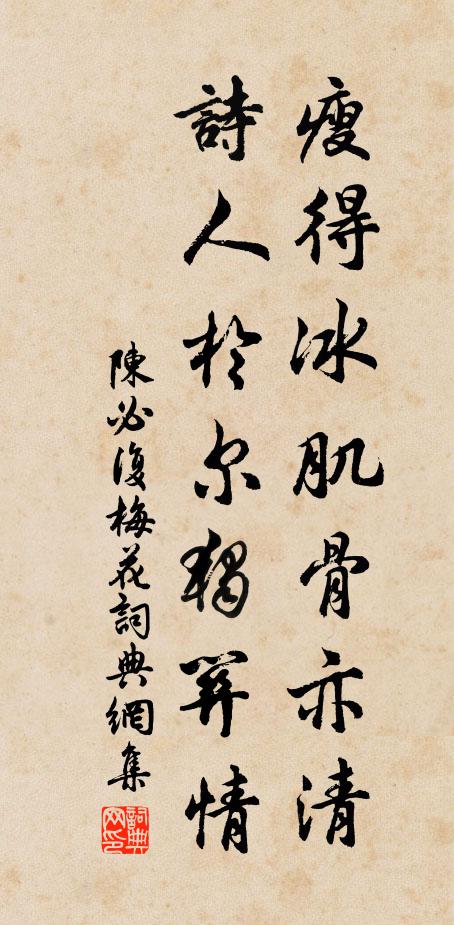 瘦得冰肌骨亦清
詩人於尔獨關情
陳必復梅花詞典網集
詞典
网印